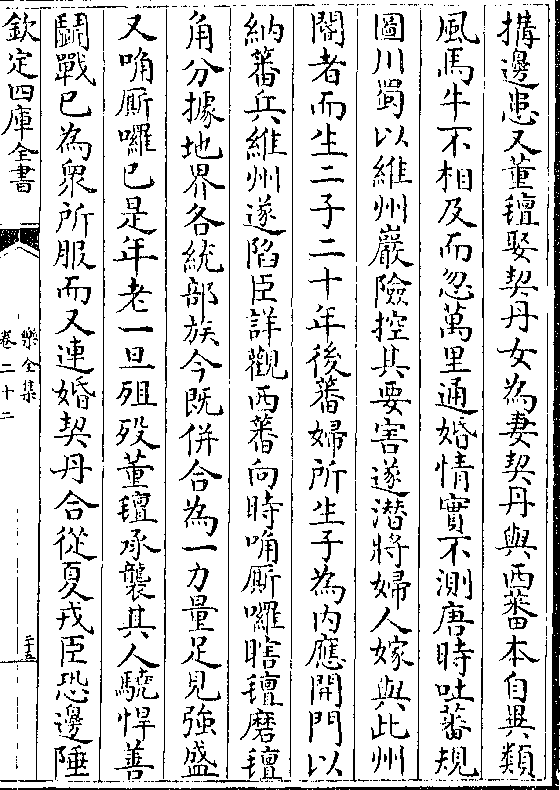 搆邊患又董氊娶契丹女為妻契丹與西蕃本自異類
風馬牛不相及而忽萬里通婚情實不測唐時吐蕃規
圖川蜀以維州巖險控其要害遂潜將婦人嫁與此州
閽者而生二子二十年後蕃婦所生子為内應開門以
納蕃兵維州遂陷臣詳觀西蕃向時唃厮囉瞎氊磨氊
角分據地界各統部族今既併合為一力量足見強盛
又唃厮囉已是年老一旦殂歿董氊承襲其人驍悍善
鬭戰已為衆所服而又連婚契丹合從夏戎臣恐邊陲
欽定四庫全書
樂全集
卷二十二
二十五